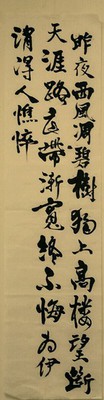 昨夜西風凋碧樹獨上高樓望斷
天涯路衣帶漸寬終不悔為伊
消得人憔悴